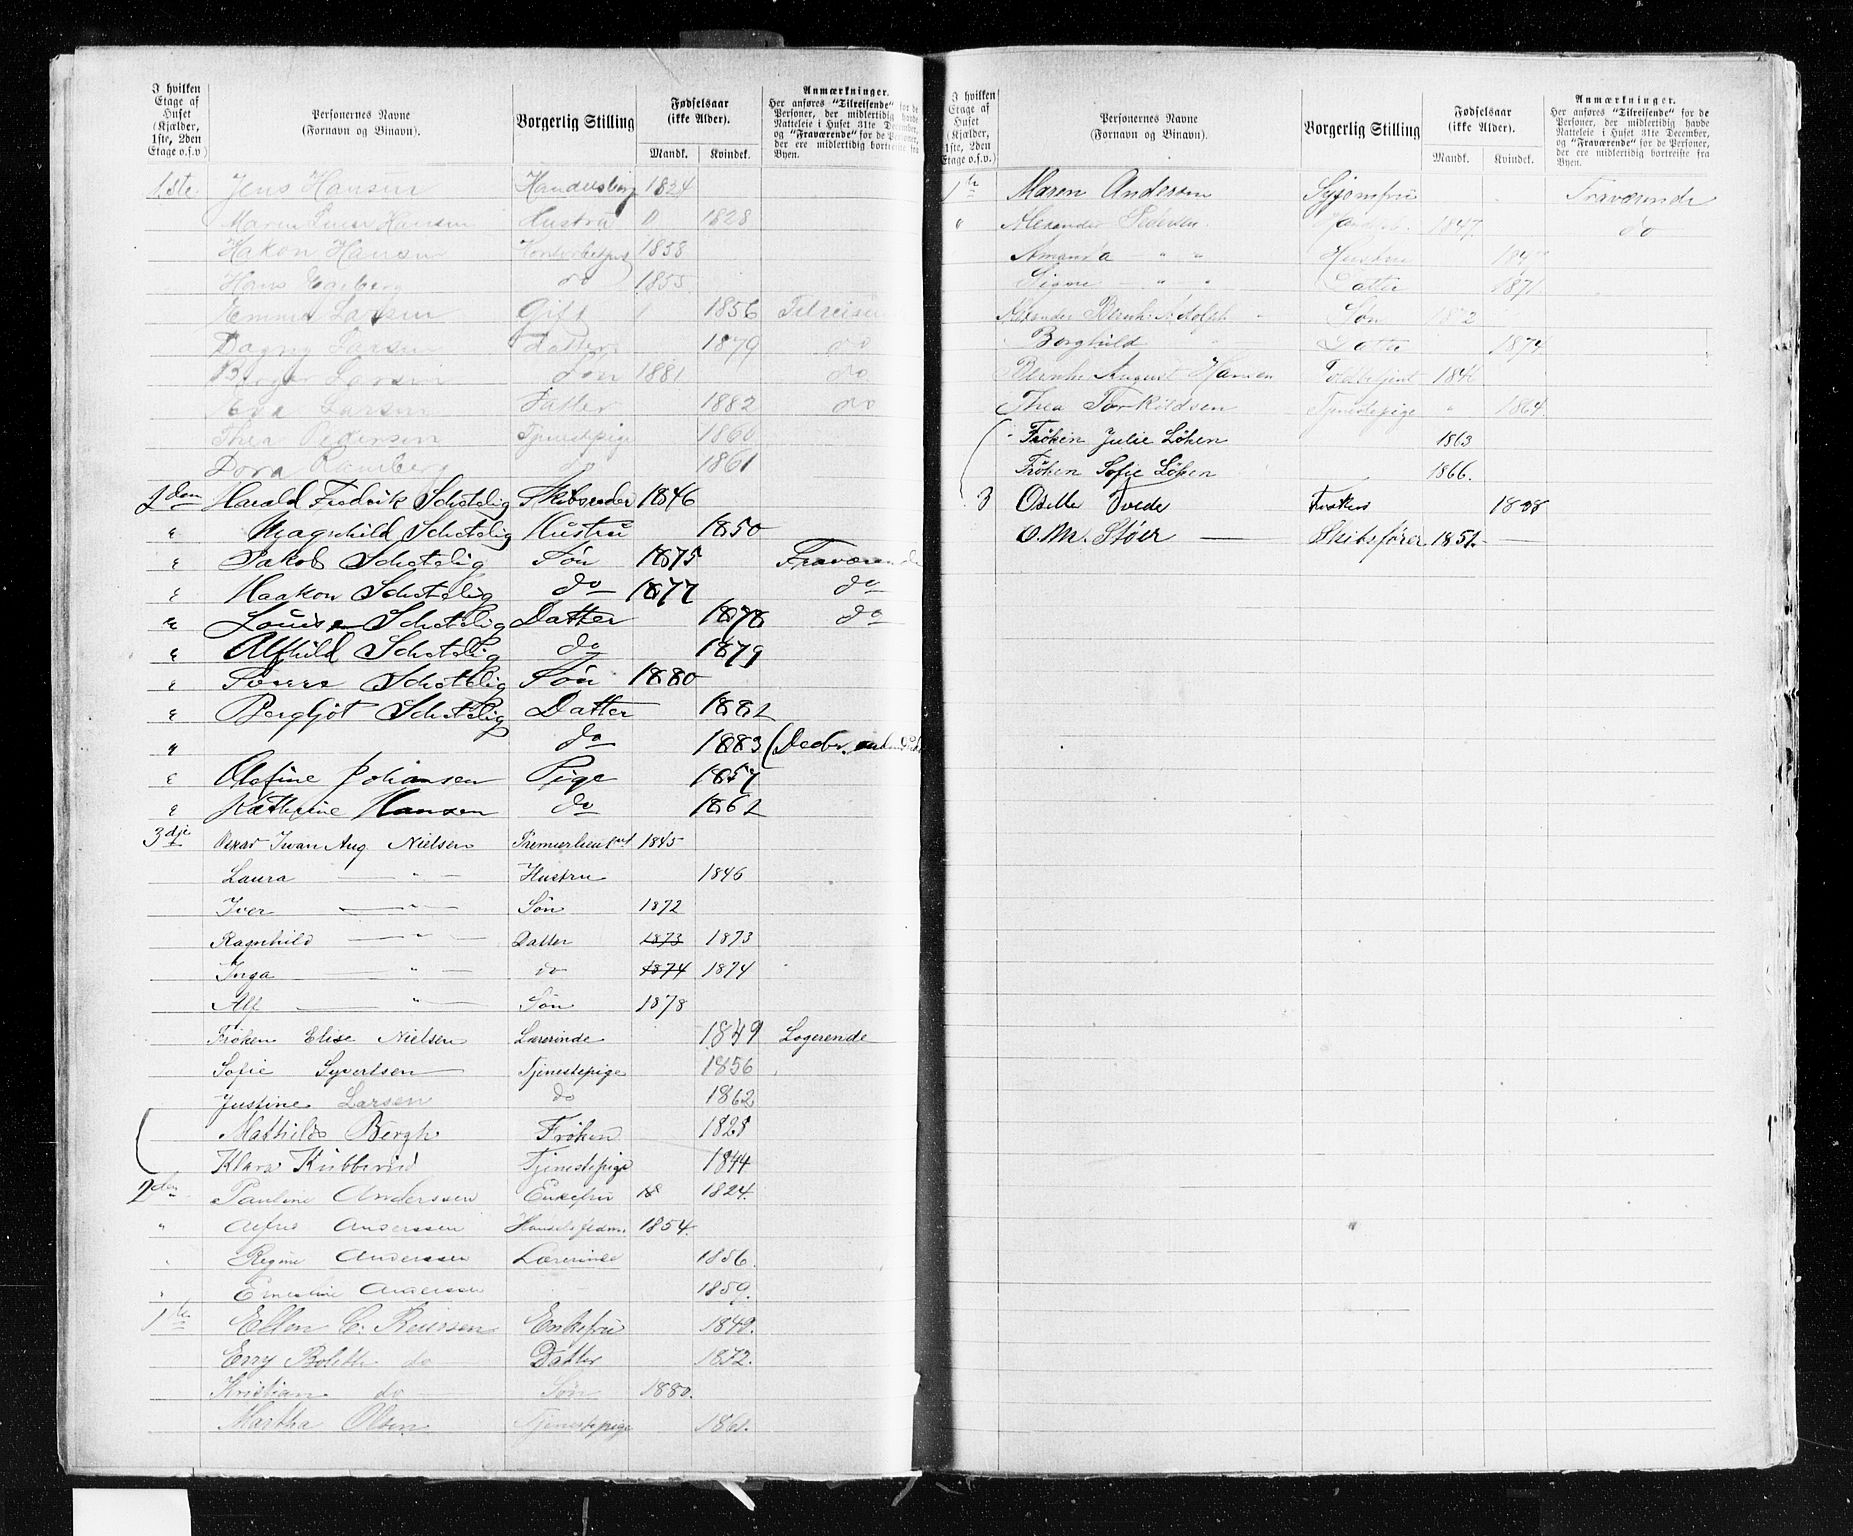 I hvilken Etage af Huset (Kjælder, 1ste, 2den Etage o.s.v.)
Personernes Navne (Fornavn og Binavn).
Borgerlig Stilling
Fødselsaar (ikke Alder).
Mandk. Kvindek.
Anmærkninger.
Her anføres "Tilreisende" for de Personer, der midlertidig havde Natteleie i Huset 31te December, og "Fraværende" for de Personer, der ere midlertidig bortreiste fra Byen.
1ste Jens Hansen Handelsbg 1824
Maren Hansen Hustru " 1828
Hakon Hansen 1858
Hans do 1855
Emma Larsen Gift 1856 Tilreisende
Dagny Larsen Datter 1879 do
Birger Larsen Søn 1881 do
Larsen Datter 1882 do
Thea Pedersen Tjenestepige 1860
Dora Ramberg do 1861
2den Harald Fredrik Schetelig Skibsreder 1846
" Magnhild Schetelig Hustru 1850
" Jakob Schetelig Søn 1875 Fraværende
" Haakon Schetelig do 1877 do
" Louise Schetelig Datter 1878 do
" Alfhild Schetelig do 1879
" Sverre Schetelig Søn 1880
" Bergljot Schetelig Datter 1882
" do 1883 (Decbr.
" Olefine Johansen Pige 1857
" Kathrine Hansen do 1862
3dje Oskar Iwan Aug Nielsen Premierlieutnant 1845
Laura — " — Hustru 1846
Iver — " — Søn 1872
Ragnhild — " — Datter 1873 1873
Inga — " — do 1874 1874
Alf — " — Søn 1878
Frøken Elise Nielsen Lærerinde 1849 Logerende
Sofie Syvertsen Tjenestepige 1856
Justine Larsen do 1862
Mathilde Bergh Frøken 1828
Klara Kubberud Tjenestepige 1844
2den Pauline Anderssen Enkefru 18 1824.
" Anderssen Handelsfuldm. 1854.
" Regine Anderssen Lærerinde 1856.
" Ernestine Anderssen 1859.
1ste Ellen C. Reiersen Enkefru 1849.
Erry Bolette do Datter 1872.
Kristian do Søn 1880.
Martha Olsen Tjenestepige 1861.
I hvilken Etage af Huset (Kjælder, 1ste, 2den Etage o.s.v.)
Personernes Navne (Fornavn og Binavn).
Borgerlig Stilling
Fødselsaar (ikke Alder).
Mandk. Kvindek.
Anmærkninger.
Her anføres "Tilreisende" for de Personer, der midlertidig havde Natteleie i Huset 31te December, og "Fraværende" for de Personer, der ere midlertidig bortreiste fra Byen.
1ste Maren Andersen Syjomfru Fraværende
" Alexander Pedersen 1847. do
Amanda — " " Hustru
Signe — " " Datter 1871
Alexander Bernh. Adolph " Søn 1872
Borghild Datter 1874
Bernh. August Hansen Toldbetjent
Thea Torkildsen Tjenestepige " 1864.
Frøken Julie Løken 1863
Frøken Sofie Løken 1866.
3 Tvede
O. M. Støer — Skibsfører 1851. —